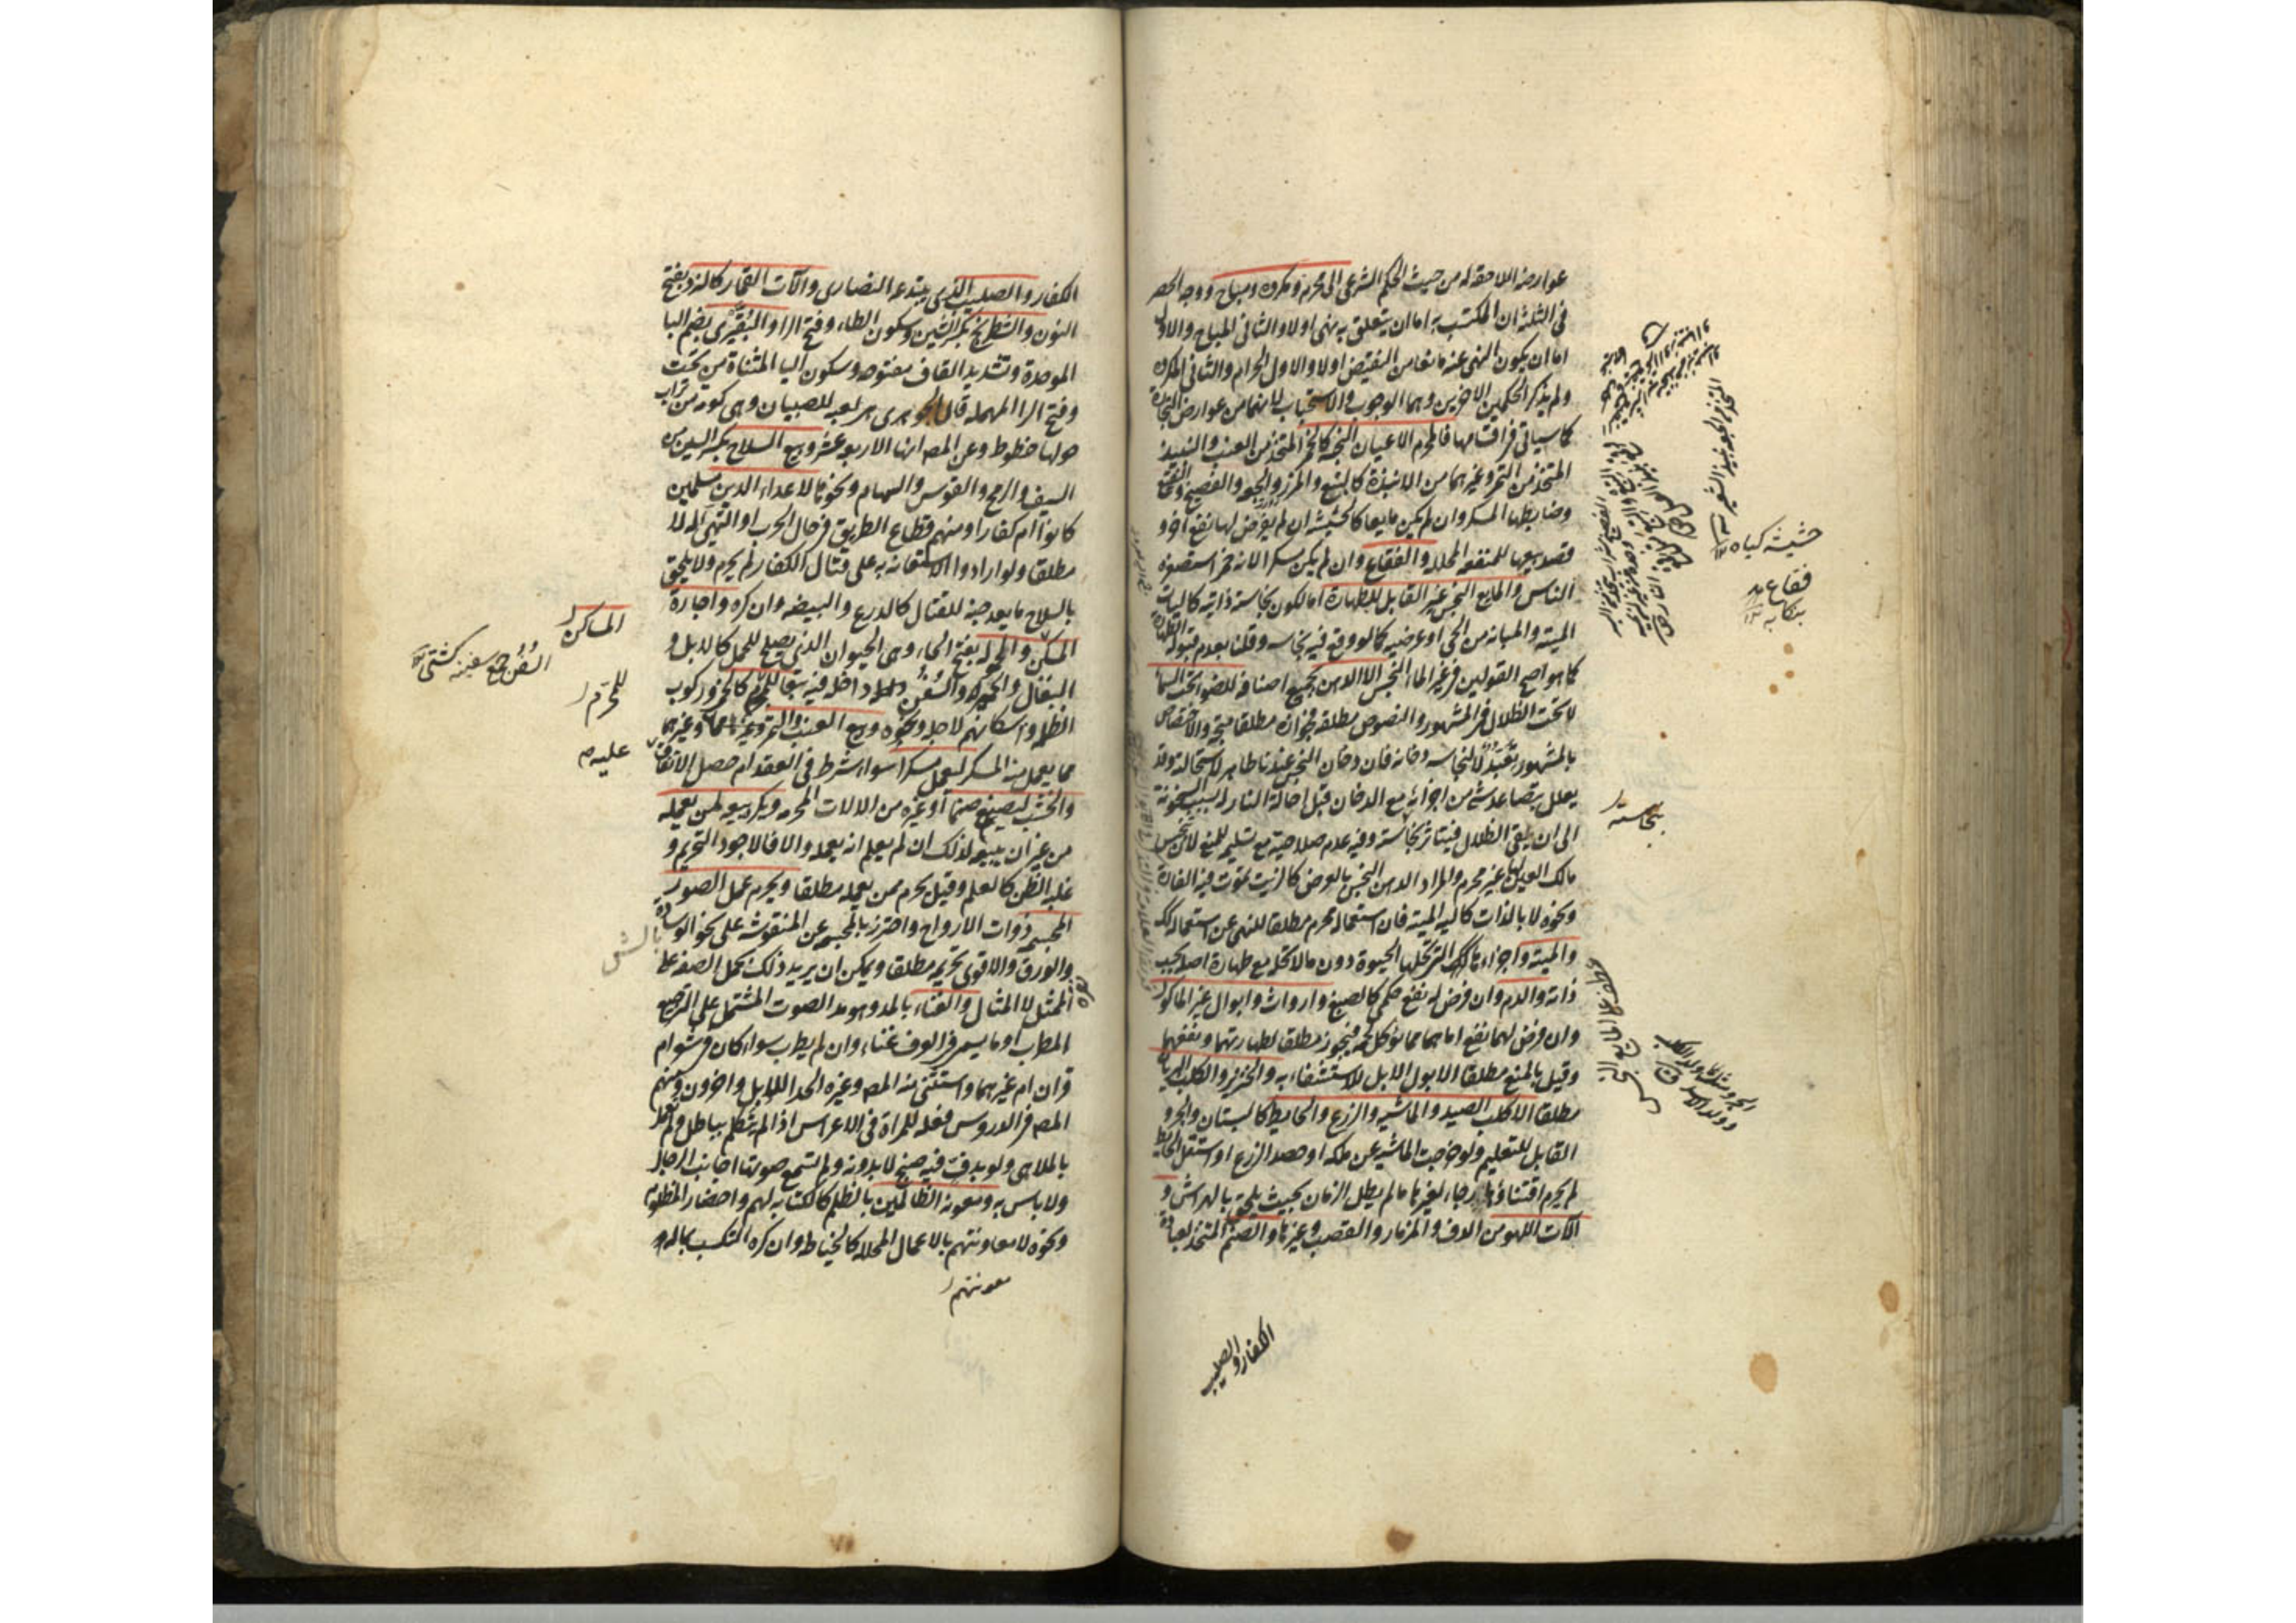 عوارضه اللاحقة له من حيث الحكم الشرعى الى محرم ومكروه ومباح ووجه الحصر
فى الثلثة ان المكتسب به اما ان يتعلق به نهى اولا والثانى المباح والاول
اما ان يكون النهى عنه مانعا من النقيض اولا والاول الحرام والثانى المكروه
ولم يذكر الحكمين الاخرين وهما الوجوب والاستحباب لانهما من عوارض التجارة
كما سياتى فى اقسامها فالمحرم الاعيان النجسة كالخمر المتخذ من العنب والنبيذ
المتخذ من التمر وغيرهما من الانبذة كالبتع والمزر والجعة والفضيخ والنقيع
وضابطها المسكر وان لم يكن مايعا كالحشيشة ان لم يفرض لها نفع اخر و
قصد بيعها للمنفعة المحللة والفقاع وان لم يكن مسكرا لانه خمر استصغره
الناس والمايع النجس غير القابل للطهارة اما لكون نجاسته ذاتية كاليات
الميتة والمبانة من الحى او عرضية كما لو وقع فيه نجاسة وقلنا بعدم قبوله الطهارة
كما هو اصح القولين فى غير الماء النجس الا الادهن بجميع اصنافه للضوء تحت السماء
لا تحت الظلال فى المشهور والنصوص مطلقة فجوازه مطلقا متجه والاختصاص
بالمشهور تعبد لا لنجاسة دخانه فان دخان النجس عندنا طاهر لاستحالته وقد
يعلل بتصاعد شئ من اجزائه مع الدخان قبل احالة النار له بسبب السخونة
الى ان يلقى الظلال فيتاثر بنجاسته وفيه عدم صلاحيته مع تسليمه للمنع لان تنجيس
مالك العين لها غير محرم والمراد الدهن النجس بالعرض كالزيت تموت فيه الفارة
ونحوه لا بالذات كالية الميتة فان استعماله محرم مطلقا للنهى عن استعماله كك
والميتة واجزاءها التى تحلها الحيوة دون ما لا تحله مع طهارة اصله بحسب
ذاته والدم وان فرض له نفع حكمى كالصبغ وارواث وابوال غير الماكول
وان فرض لهما نفع اما هما مما يؤكل لحمه فيجوز مطلقا لطهارتهما ونفعهما
وقيل بالمنع مطلقا الا بول الابل للاستشفاء به والخنزير والكلب البريان
مطلقا الا كلب الصيد والماشية والزرع والحايط كالبستان والجرو
القابل للتعليم ولو خرجت الماشية عن ملكه او حصد الزرع او استغل الحايط
لم يحرم اقتناؤها رجاء لغيرها ما لم يطل الزمان بحيث يلحق بالهراش و
آلات اللهو من الدف والمزمار والقصب وغيرها والصنم المتخذ لعبادة
الكفار والصليب
حشيشه كياه
فقاع
نجاسته
الكفار والصليب الذى يبتدعه النصارى وآلات القمار كالنرد بفتح
النون والشطرنج بكسر الشين وسكون الطاء وفتح الرا والبقيرى بضم البا
الموحدة وتشديد القاف مفتوحه وسكون اليا المثناة من تحت
وفتح الرا المهملة قال الجوهرى هى لعبة للصبيان وهى كومة من تراب
حولها خطوط وعن المصـ انها الاربعة عشر وبيع السلاح بكسر السين من
السيف والرمح والقوس والسهام ونحوها لاعداء الدين مسلمين
كانوا ام كفارا ومنهم قطاع الطريق فى حال الحرب او التهيئ له لا
مطلقا ولو ارادوا الاستعانة به على قتال الكفار لم يحرم ولا يلحق
بالسلاح ما يعد جنة للقتال كالدرع والبيضة وان كره واجارة
المسكن والحمولة بفتح الحاء وهى الحيوان الذى يصلح للحمل كالابل و
البغال والحمير والسفن داخلة فيه تبعا للمحرم كالخمر وركوب
الظلمة واسكانهم لاجله ونحوه وبيع العنب والتمر وغيرهما
مما يعمل منه المسكر ليعمل مسكرا سواء اشترط فى العقد ام حصل الاتفاق
والخشب ليصنع صنما او غيره من الالات المحرمة ويكره بيعه لمن يعمله
من غير ان يبيعه لذلك ان لم يعلم انه يعمله والا فالاجود التحريم و
غلبة الظن كالعلم وقيل يحرم ممن يعمله مطلقا ويحرم عمل الصور
المجسمة ذوات الارواح واحترز بالمجسمة عن المنقوشة على نحو الوسادة
والورق والاقوى تحريمه مطلقا ويمكن ان يريد ذلك بحمل الصفة على
الممثل لا المثال والغناء بالمد وهو مد الصوت المشتمل على الترجيع
المطرب او ما يسمى فى العرف غناء وان لم يطرب سواء كان فى شعر ام
قران ام غيرهما واستثنى منه المصـ وغيره الحداء للابل واخرون ومنهم
المصـ فى الدروس فعله للمراة فى الاعراس اذا لم تتكلم بباطل ولم تعمل
بالملاهى ولو بدف فيه صنج لا بدونه ولم تسمع صوتها اجانب الرجال
ولا باس به ومعونة الظالمين بالظلم كالكتابة لهم واحضار المظلوم
ونحوه لا معاونتهم بالاعمال المحللة كالخياطة وان كره التكسب بماله
معونتهم
المساكن
السفن جمع سفينه كشتى
للمحرم
عليه
بالش